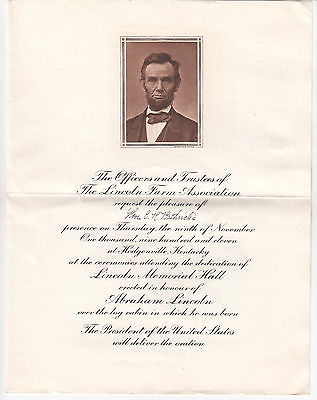 The Officers and Trustees of
The Lincoln Farm Association
request the pleasure of
presence on Thursday, the ninth of November
One thousand, nine hundred and eleven
at Hodgenville, Kentucky
at the ceremonies attending the dedication of
Lincoln Memorial Hall
erected in honour of
Abraham Lincoln
over the log cabin in which he was born
The President of the United States
will deliver the oration